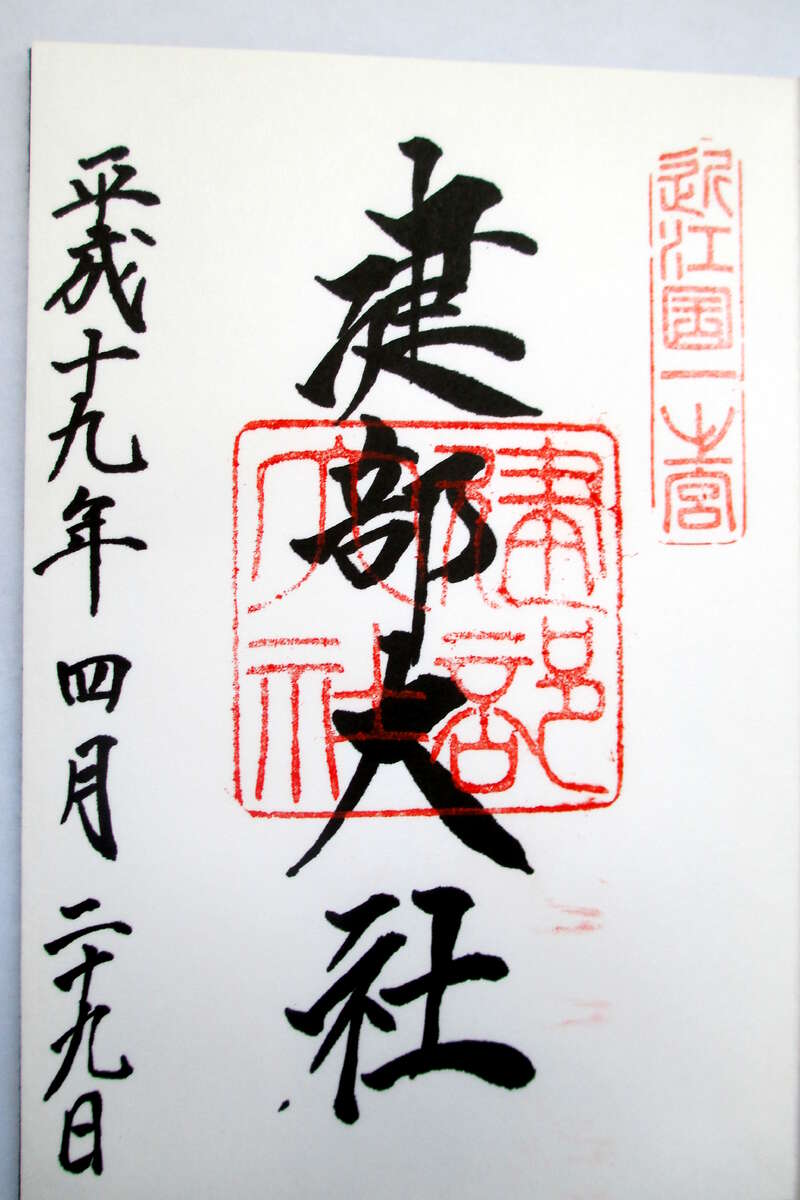 近江国一之宮
建部大社
建部大社
平成十九年四月二十九日